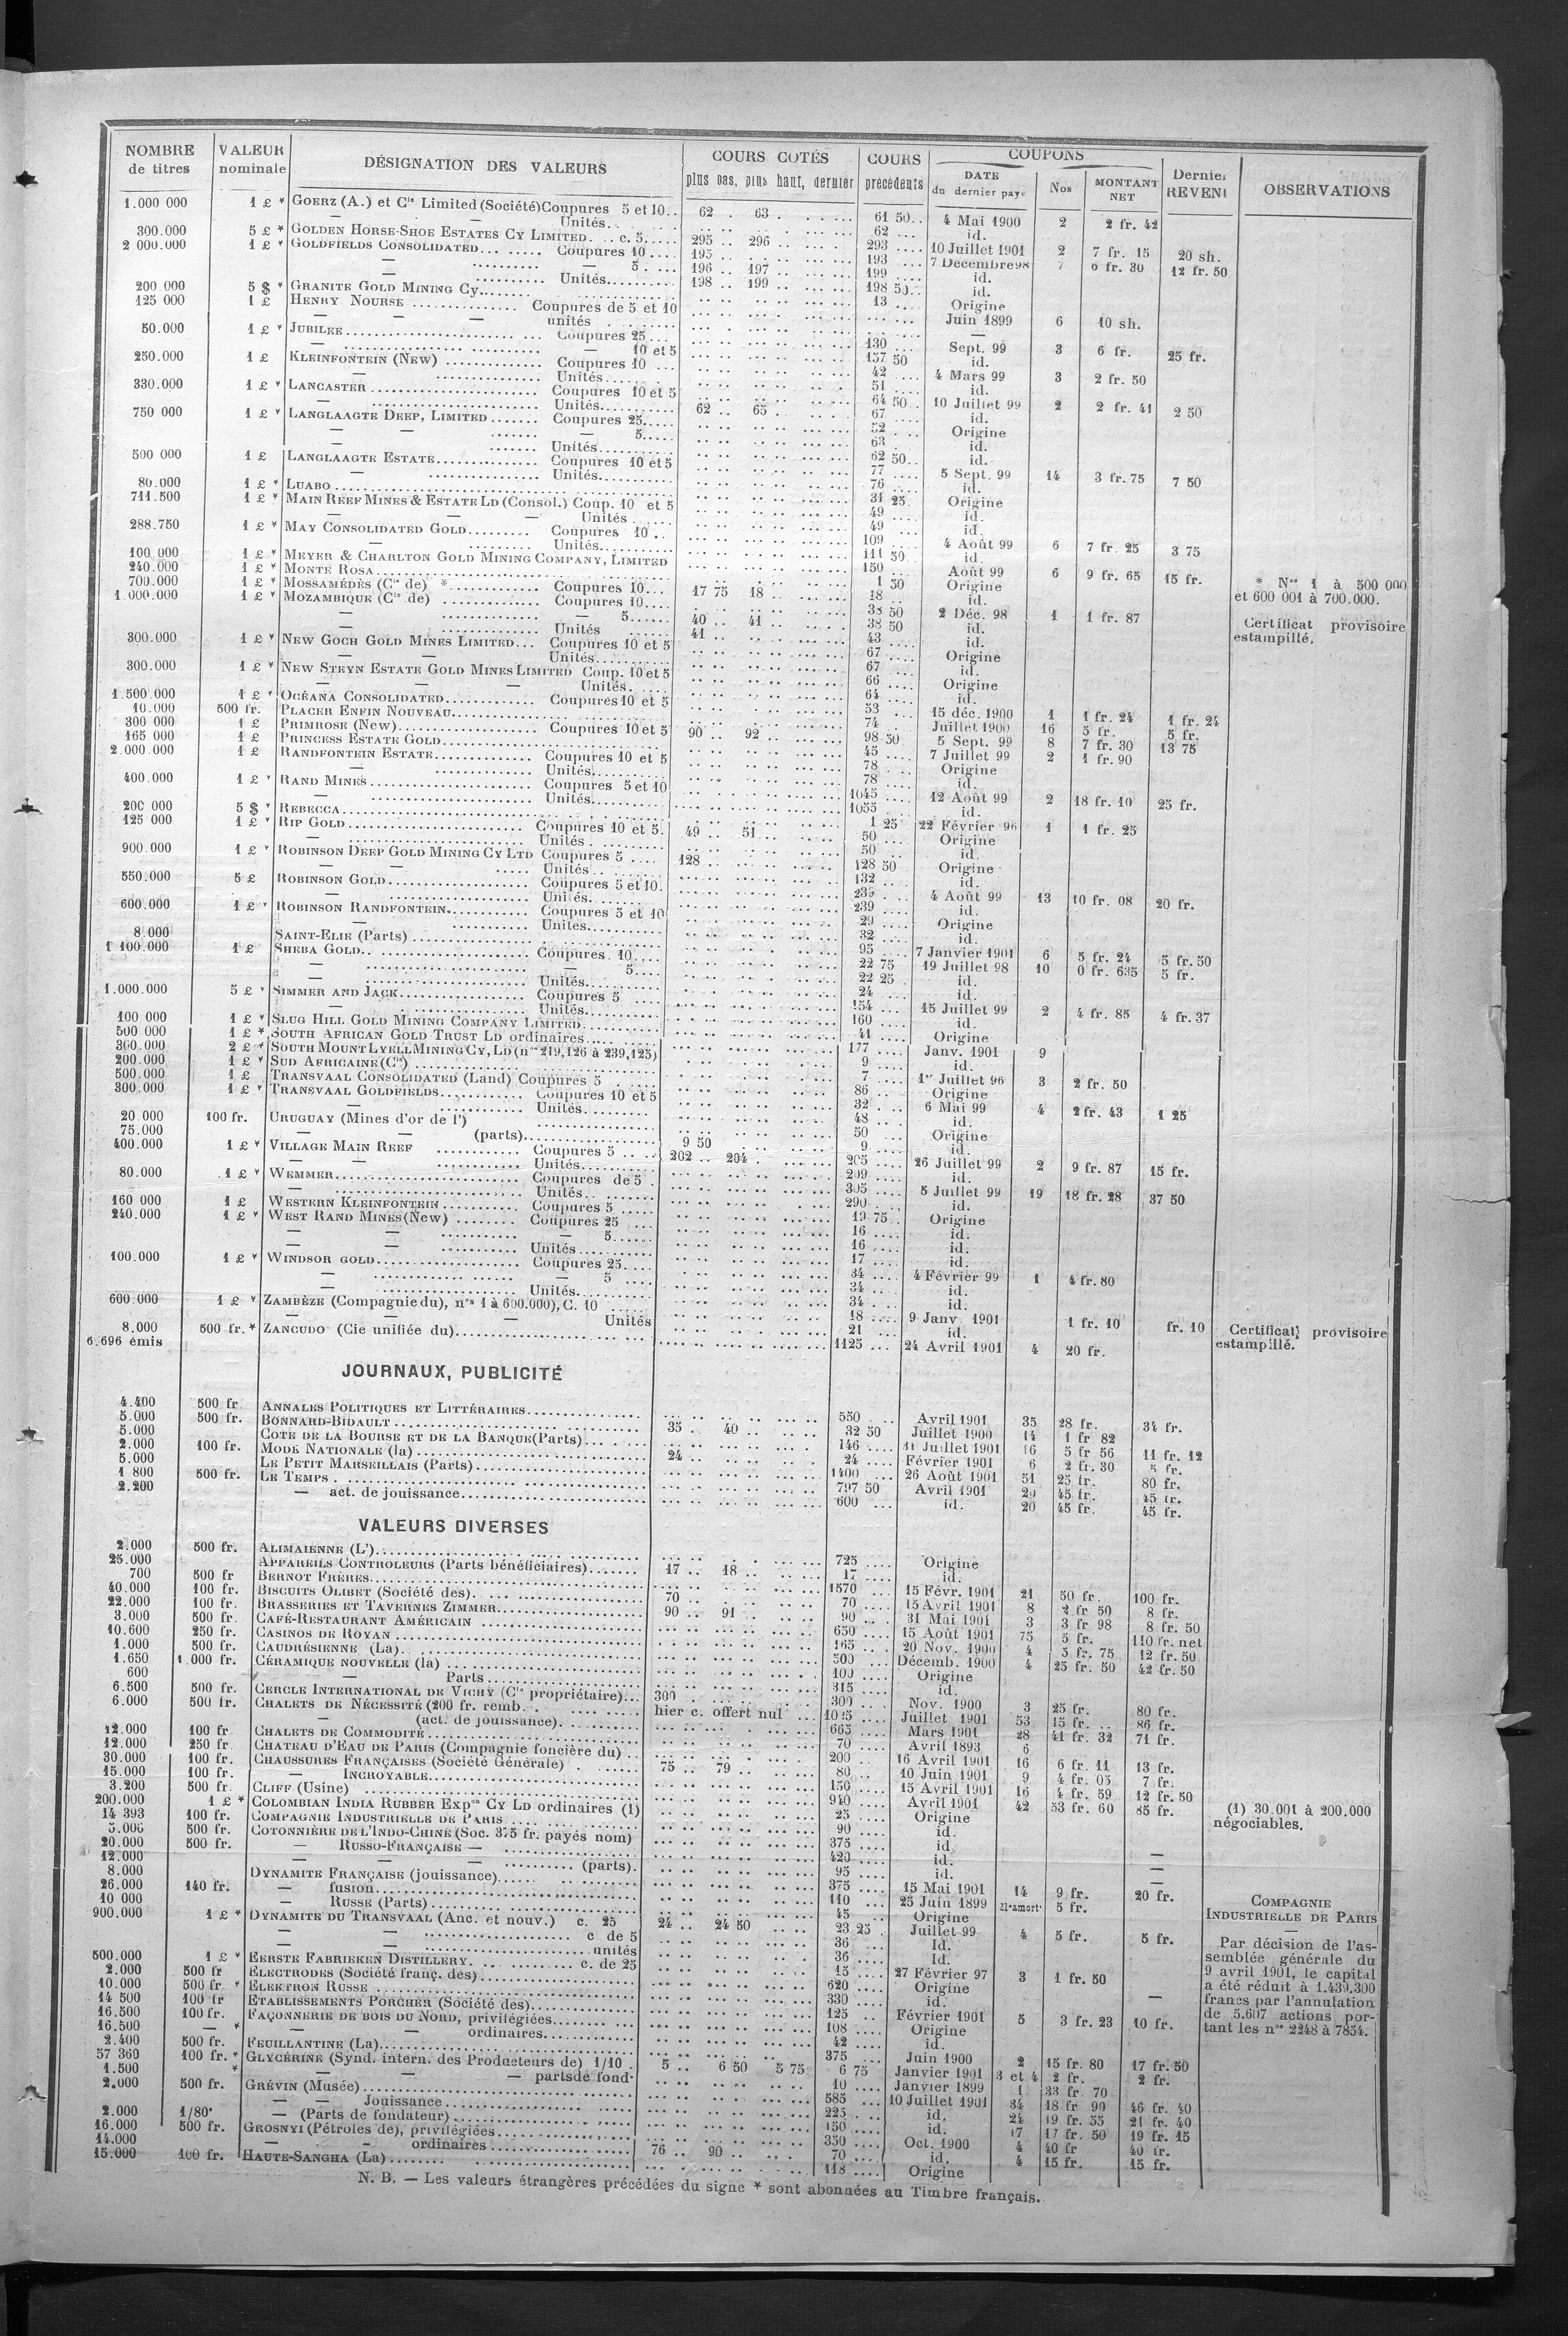 NOMBRE de titres | VALEUR nominale | DÉSIGNATION DES VALEURS | COURS COTÉS plus bas, plus haut, dernier | COURS précédents | COUPONS DATE du dernier payé | Nos | MONTANT NET | Dernier REVENU | OBSERVATIONS
1.000 000 1 £ * GOERZ (A.) et Cie Limited (Société) Coupures 5 et 10.. 62 . 63 . 61 50.. 4 Mai 1900 2 2 fr. 42
— — Unités.. 62 ... id.
300.000 5 £ * GOLDEN HORSE-SHOE ESTATES CY LIMITED. .. c. 5..... 295 .. 296 .. 293 .... 10 Juillet 1901 2 7 fr. 15 20 sh.
2 000.000 1 £ * GOLDFIELDS CONSOLIDATED... ..... Coupures 10 .... 195 .. 193 ... 7 Décembre 98 7 6 fr. 30 12 fr. 50
— ......... — 5. .... 196 .. 197 .. 199 .... id.
— .......... Unités.......... 198 .. 199 ... 198 50.. id.
200 000 5 $ * GRANITE GOLD MINING Cy........ 13 ... Origine
125 000 1 £ HENRY NOURSE ............... Coupures de 5 et 10 Juin 1899 6 10 sh.
— — unités . —
50.000 1 £ * JUBILEE........................ ... Coupures 25... 130 ... Sept. 99 3 6 fr. 25 fr.
— ....................... — 10 et 5 157 50 id.
250.000 1 £ KLEINFONTEIN (New) .............. Coupures 10 ... 42 .... 4 Mars 99 3 2 fr. 50
— ............... Unités........ 51 .... id.
330.000 1 £ * LANCASTER ........................ Coupures 10 et 5 64 50.. 10 Juillet 99 2 2 fr. 41 2 50
— ........................ Unités........... 62 .. 65 .. 67 .... id.
750 000 1 £ * LANGLAAGTE DEEP, LIMITED ....... Coupures 25..... 52 . ... Origine
— — ....... — 5..... 63 ... id.
— — ....... Unités........... 62 50.. id.
500 000 1 £ LANGLAAGTE ESTATE............... Coupures 10 et 5 77 .... 5 Sept. 99 14 3 fr. 75 7 50
— ................ Unités........... 76 ... id.
80.000 1 £ * LUABO ........................ 31 25. Origine
711.500 1 £ * MAIN REEF MINES & ESTATE LD (Consol.) Coup. 10 et 5 49 .... id.
— — — Unités ...... 49 ... id.
288.750 1 £ * MAY CONSOLIDATED GOLD......... Coupures 10 .. 109 ... 4 Août 99 6 7 fr. 25 3 75
— ......... Unités........... 111 50 id.
100 000 1 £ * MEYER & CHARLTON GOLD MINING COMPANY, LIMITED 150 ... Août 99 6 9 fr. 65 15 fr.
240.000 1 £ * MONTE ROSA........................ 1 50 Origine
700.000 1 £ * MOSSAMÉDÈS (Cie de) * ............ Coupures 10... 17 75 18 .. 18 ... id. * Nos 1 à 500 000
1.000.000 1 £ * MOZAMBIQUE (Cie de) ............. Coupures 10.... 38 50 2 Déc. 98 1 1 fr. 87 et 600 001 à 700.000.
— ............. — 5...... 40 .. 41 .. 38 50 id. Certificat provisoire
— ............. Unités ...... 41 .. 43 ... id. estampillé.
300.000 1 £ * NEW GOCH GOLD MINES LIMITED... Coupures 10 et 5 67 .... Origine
— — Unités........... 67 .... id.
300.000 1 £ * NEW STEYN ESTATE GOLD MINES LIMITED Coup. 10 et 5 66 .... Origine
— — Unités...... 64 .... id.
1.500.000 1 £ * OCÉANA CONSOLIDATED............. Coupures 10 et 5 53 ... 15 déc. 1900 1 1 fr. 24 1 fr. 24
10.000 500 fr. PLACER ENFIN NOUVEAU............................ 74 .. Juillet 1900 16 5 fr. 5 fr.
300 000 1 £ PRIMROSE (New)...................... Coupures 10 et 5 90 .. 92 .. 98 50 5 Sept. 99 8 7 fr. 30 13 75
165 000 1 £ PRINCESS ESTATE GOLD............................ 45 .... 7 Juillet 99 2 1 fr. 90
2.000.000 1 £ RANDFONTEIN ESTATE.............. Coupures 10 et 5 78 .... Origine
— .............. Unités........... 78 .... id.
400.000 1 £ * RAND MINES ........................ Coupures 5 et 10 1045 .... 12 Août 99 2 18 fr. 10 25 fr.
— ........................ Unités........... 1055 ... id.
200 000 5 $ * REBECCA.................................... 1 25 22 Février 96 1 1 fr. 25
125 000 1 £ * RIP GOLD ........................ Coupures 10 et 5. 49 .. 51 .. 50 ... Origine
— ........................ Unités ........... 50 ... id.
900.000 1 £ * ROBINSON DEEP GOLD MINING CY LTD Coupures 5 .... 128 .. 128 50 Origine
— — ..... Unités........... 132 ... id.
550.000 5 £ ROBINSON GOLD.................... Coupures 5 et 10. 235 .... 4 Août 99 13 10 fr. 08 20 fr.
— .................... Unités.......... 239 .... id.
600.000 1 £ * ROBINSON RANDFONTEIN........... Coupures 5 et 10 29 .... Origine
— ........... Unités........... 32 .... id.
8.000 SAINT-ELIE (Parts) ............................ 95 .... 7 Janvier 1901 6 5 fr. 24 5 fr. 50
1 100.000 1 £ SHEBA GOLD.. ...................... Coupures. 10.... 22 75 19 Juillet 98 10 0 fr. 635 5 fr.
— ........................ — 5.... 22 25 . id.
— ........................ Unités........... 24 .... id.
1.000.000 5 £ * SIMMER AND JACK................... Coupures 5 .... 154 ... 15 Juillet 99 2 4 fr. 85 4 fr. 37
— ................... Unités........... 160 .... id.
100 000 1 £ * SLUG HILL GOLD MINING COMPANY LIMITED............ 41 .... Origine
500 000 1 £ * SOUTH AFRICAN GOLD TRUST LD ordinaires..... 177 .... Janv. 1901 9
300.000 2 £ * SOUTH MOUNT LYELL MINING CY, LD (nos 219,126 à 239,125) 9 .... id.
200.000 1 £ * SUD AFRICAINE (Cie) ............................ 7 .... 1er Juillet 96 3 2 fr. 50
500.000 1 £ TRANSVAAL CONSOLIDATED (Land) Coupures 5 . ..... 86 .. Origine
300.000 1 £ * TRANSVAAL GOLDFIELDS............ Coupures 10 et 5 32 . ... 6 Mai 99 4 2 fr. 43 1 25
— ............ Unités.......... 48 ... id.
20.000 100 fr. URUGUAY (Mines d'or de l') ................ 50 .... Origine
75.000 — — (parts)................ 9 50 9 .... id.
400.000 1 £ * VILLAGE MAIN REEF ............ Coupures 5 .. .. 202 .. 204 . 205 .... 26 Juillet 99 2 9 fr. 87 15 fr.
— ............ Unités........... 209 .... id.
80.000 1 £ * WEMMER.............................. Coupures de 5 . 305 .... 5 Juillet 99 19 18 fr. 28 37 50
— .............................. Unités.. ....... 290 .... id.
160 000 1 £ WESTERN KLEINFONTEIN ........... Coupures 5 ..... 19 75.. Origine
240.000 1 £ * WEST RAND MINES (New) ......... Coupures 25 .... 16 .... id.
— — ........... — 5...... 16 .... id.
— — ........... Unités........... 17 .... id.
100.000 1 £ * WINDSOR GOLD..................... Coupures 25.... 34 .... 4 Février 99 1 4 fr. 80
— ..................... — 5 .... 34 .... id.
— ..................... Unités........... 34 .... id.
600.000 1 £ * ZAMBÈZE (Compagnie du), nos 1 à 600.000), C. 10 ...... 18 .... 9 Janv 1901 1 fr. 10 fr. 10 Certificat provisoire
— — — Unités 21 ... id. estampillé.
8.000 500 fr. * ZANCUDO (Cie unifiée du)............................ 1125 ... 24 Avril 1901 4 20 fr.
6.696 émis
JOURNAUX, PUBLICITÉ
4.400 500 fr. ANNALES POLITIQUES ET LITTÉRAIRES............... 550 .... Avril 1901 35 28 fr. 34 fr.
5.000 500 fr. BONNARD-BIDAULT ............................ 35 . 40 .. 32 50 Juillet 1900 14 1 fr 82
5.000 COTE DE LA BOURSE ET DE LA BANQUE (Parts)... 146 .... 31 Juillet 1901 16 5 fr 56 11 fr. 12
2.000 100 fr. MODE NATIONALE (la) ............................ 24 .. 24 .... Février 1901 6 2 fr. 30 5 fr.
5.000 LE PETIT MARSEILLAIS (Parts)..................... 1400 ... 26 Août 1901 51 25 fr. 80 fr.
1 800 500 fr. LE TEMPS . ............................ 797 50 Avril 1901 20 45 fr. 45 fr.
2.200 — act. de jouissance............................ 600 ... id. 20 45 fr. 45 fr.
VALEURS DIVERSES
2.000 500 fr. ALIMAIENNE (L')............................ 725 .... Origine
25.000 APPAREILS CONTROLEURS (Parts bénéficiaires)....... 17 .. 18 .. 17 .... id.
700 500 fr BERNOT FRÈRES............................ 1570 ... 15 Févr. 1901 21 50 fr. 100 fr.
40.000 100 fr. BISCUITS OLIBET (Société des)..................... 70 .. 70 .... 15 Avril 1901 8 2 fr 50 8 fr.
22.000 100 fr. BRASSERIES ET TAVERNES ZIMMER................... 90 .. 91 .. 90 ... 31 Mai 1901 3 3 fr 98 8 fr. 50
3.000 500 fr. CAFÉ-RESTAURANT AMÉRICAIN ..................... 650 .... 15 Août 1901 75 5 fr. 110 fr. net
10.600 250 fr. CASINOS DE ROYAN ............................ 165 ... 20 Nov. 1900 4 5 fr. 75 12 fr. 50
1.000 500 fr. CAUDRÉSIENNE (La)............................ 500 ... Décemb. 1900 4 25 fr. 50 42 fr. 50
1.650 1.000 fr. CÉRAMIQUE NOUVELLE (la) ..................... 100 .... Origine
600 — Parts ..................... 315 .... id.
6.500 500 fr. CERCLE INTERNATIONAL DE VICHY (Cie propriétaire)... 300 . 300 ... Nov. 1900 3 25 fr. 80 fr.
6.000 500 fr. CHALETS DE NÉCESSITÉ (200 fr. remb. . hier c. offert nul ... Juillet 1901 53 15 fr. .. 86 fr.
— (act. de jouissance). .......... 665 .... Mars 1901 28 41 fr. 32 71 fr.
12.000 100 fr. CHALETS DE COMMODITÉ ..................... 70 .... Avril 1893 6
12.000 250 fr CHATEAU D'EAU DE PARIS (Compagnie foncière du) .. 200 ... 16 Avril 1901 16 6 fr. 11 13 fr.
30.000 100 fr. CHAUSSURES FRANÇAISES (Société Générale) . ...... 75 .. 79 .. 80 ... 10 Juin 1901 9 4 fr. 05 7 fr.
15.000 100 fr. — INCROYABLE..................... 150 .... 15 Avril 1901 16 4 fr. 59 12 fr. 50
3.200 500 fr. CLIFF (Usine) ............................ 940 .... Avril 1901 42 53 fr. 60 85 fr.
200.000 1 £ * COLOMBIAN INDIA RUBBER Expon CY LD ordinaires (1) 25 .... Origine (1) 30.001 à 200.000
14 393 100 fr. COMPAGNIE INDUSTRIELLE DE PARIS ............... 90 .... id. négociables.
5.000 500 fr. COTONNIÈRE DE L'INDO-CHINE (Soc. 375 fr. payés nom) 375 .... id.
20.000 500 fr. — RUSSO-FRANÇAISE — ............... 420 .... id. —
12.000 — — — .......... (parts). 95 .... id. —
8.000 DYNAMITE FRANÇAISE (jouissance)..................... 375 .... 15 Mai 1901 14 9 fr. 20 fr.
26.000 140 fr. — fusion............................ 110 .... 25 Juin 1899 2e amort 5 fr.
10 000 — RUSSE (Parts) ..................... 45 .. Origine
900.000 1 £ * DYNAMITE DU TRANSVAAL (Anc. et nouv.) c. 25 24 .. 24 50 23 25 . Juillet 99 4 5 fr. 5 fr.
— — ..................... c de 5 36 ... Id.
— — ..................... unités 36 .... Id.
500.000 1 £ * EERSTE FABRIEKEN DISTILLERY. . ............ c. de 25 15 .... 27 Février 97 3 1 fr. 50
2.000 500 fr ELECTRODES (Société franç. des)..................... 620 .... Origine
10.000 500 fr. * ELEKTRON RUSSE ............................ 330 .... id. —
14 500 100 fr ETABLISSEMENTS PORCHER (Société des)............... 125 .. Février 1901 5 3 fr. 23 10 fr.
16.500 100 fr. FAÇONNERIE DE BOIS DU NORD, privilégiées............ 108 .... Origine
16.500 — * — — ordinaires............... 42 .... id.
2.400 500 fr. FEUILLANTINE (La)............................ 375 .... Juin 1900 2 15 fr. 80 17 fr. 50
57 360 100 fr. * GLYCÉRINE (Synd. intern. des Producteurs de) 1/10 . 5 .. 6 50 5 75 6 75 Janvier 1901 3 et 4 2 fr. 2 fr.
1.500 * — — — parts de fond. 10 .... Janvier 1899 1 33 fr. 70
2.000 500 fr. GRÉVIN (Musée) ............................ 585 .... 10 Juillet 1901 34 18 fr 90 46 fr. 40
— — Jouissance ..................... 225 ... id. 24 19 fr. 55 21 fr. 40
2.000 1/80e — (Parts de fondateur)..................... 150 .... id. 17 17 fr. 50 19 fr. 15
16.000 500 fr. GROSNYI (Pétroles de), privilégiées............... 350 .... Oct. 1900 4 40 fr 40 fr.
14.000 — - ordinaires ............... 76 .. 90 .. 70 ... id. 4 15 fr. 15 fr.
15.000 100 fr. HAUTE-SANGHA (La)........ ............... 118 .... Origine
COMPAGNIE
INDUSTRIELLE DE PARIS
—
Par décision de l'as-
semblée générale du
9 avril 1901, le capital
a été réduit à 1.439.300
francs par l'annulation
de 5.607 actions por-
tant les nos 2248 à 7854.
N. B. — Les valeurs étrangères précédées du signe * sont abonnées au Timbre français.